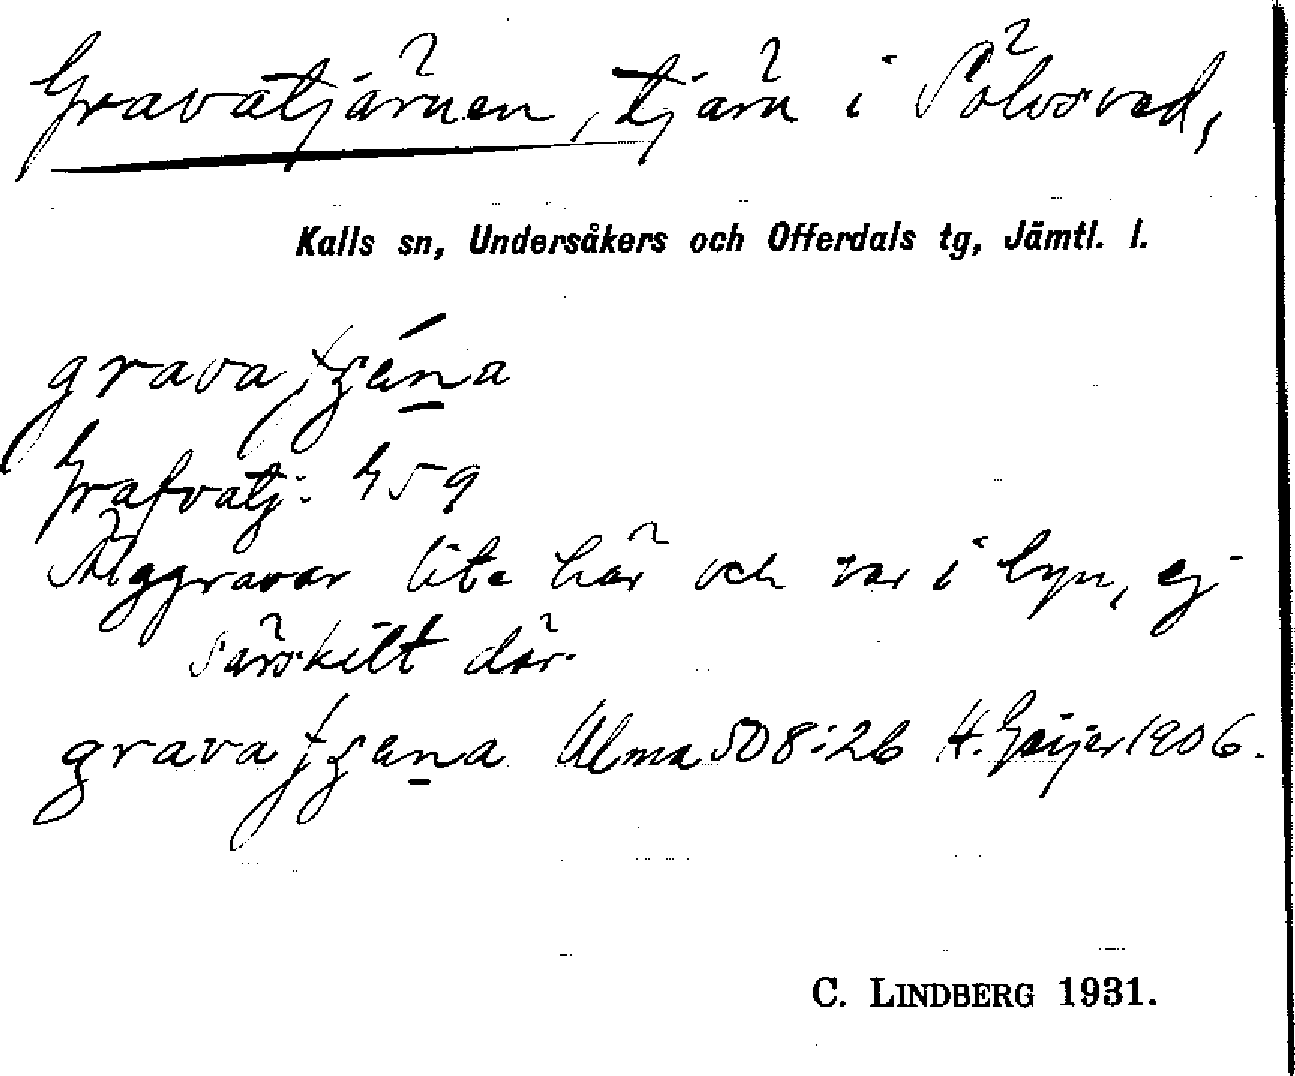 Gravatjärnen, tjärn i Sölvsved,
Kalls sn, Undersåkers och Offerdals tg, Jämtl. l.
grava
Grafvatj: 459
Älggravar lite här och var i byn, ej
särskilt där.
grava Ulma 508:26 H. Geijer 1906.
C. LINDBERG 1931.